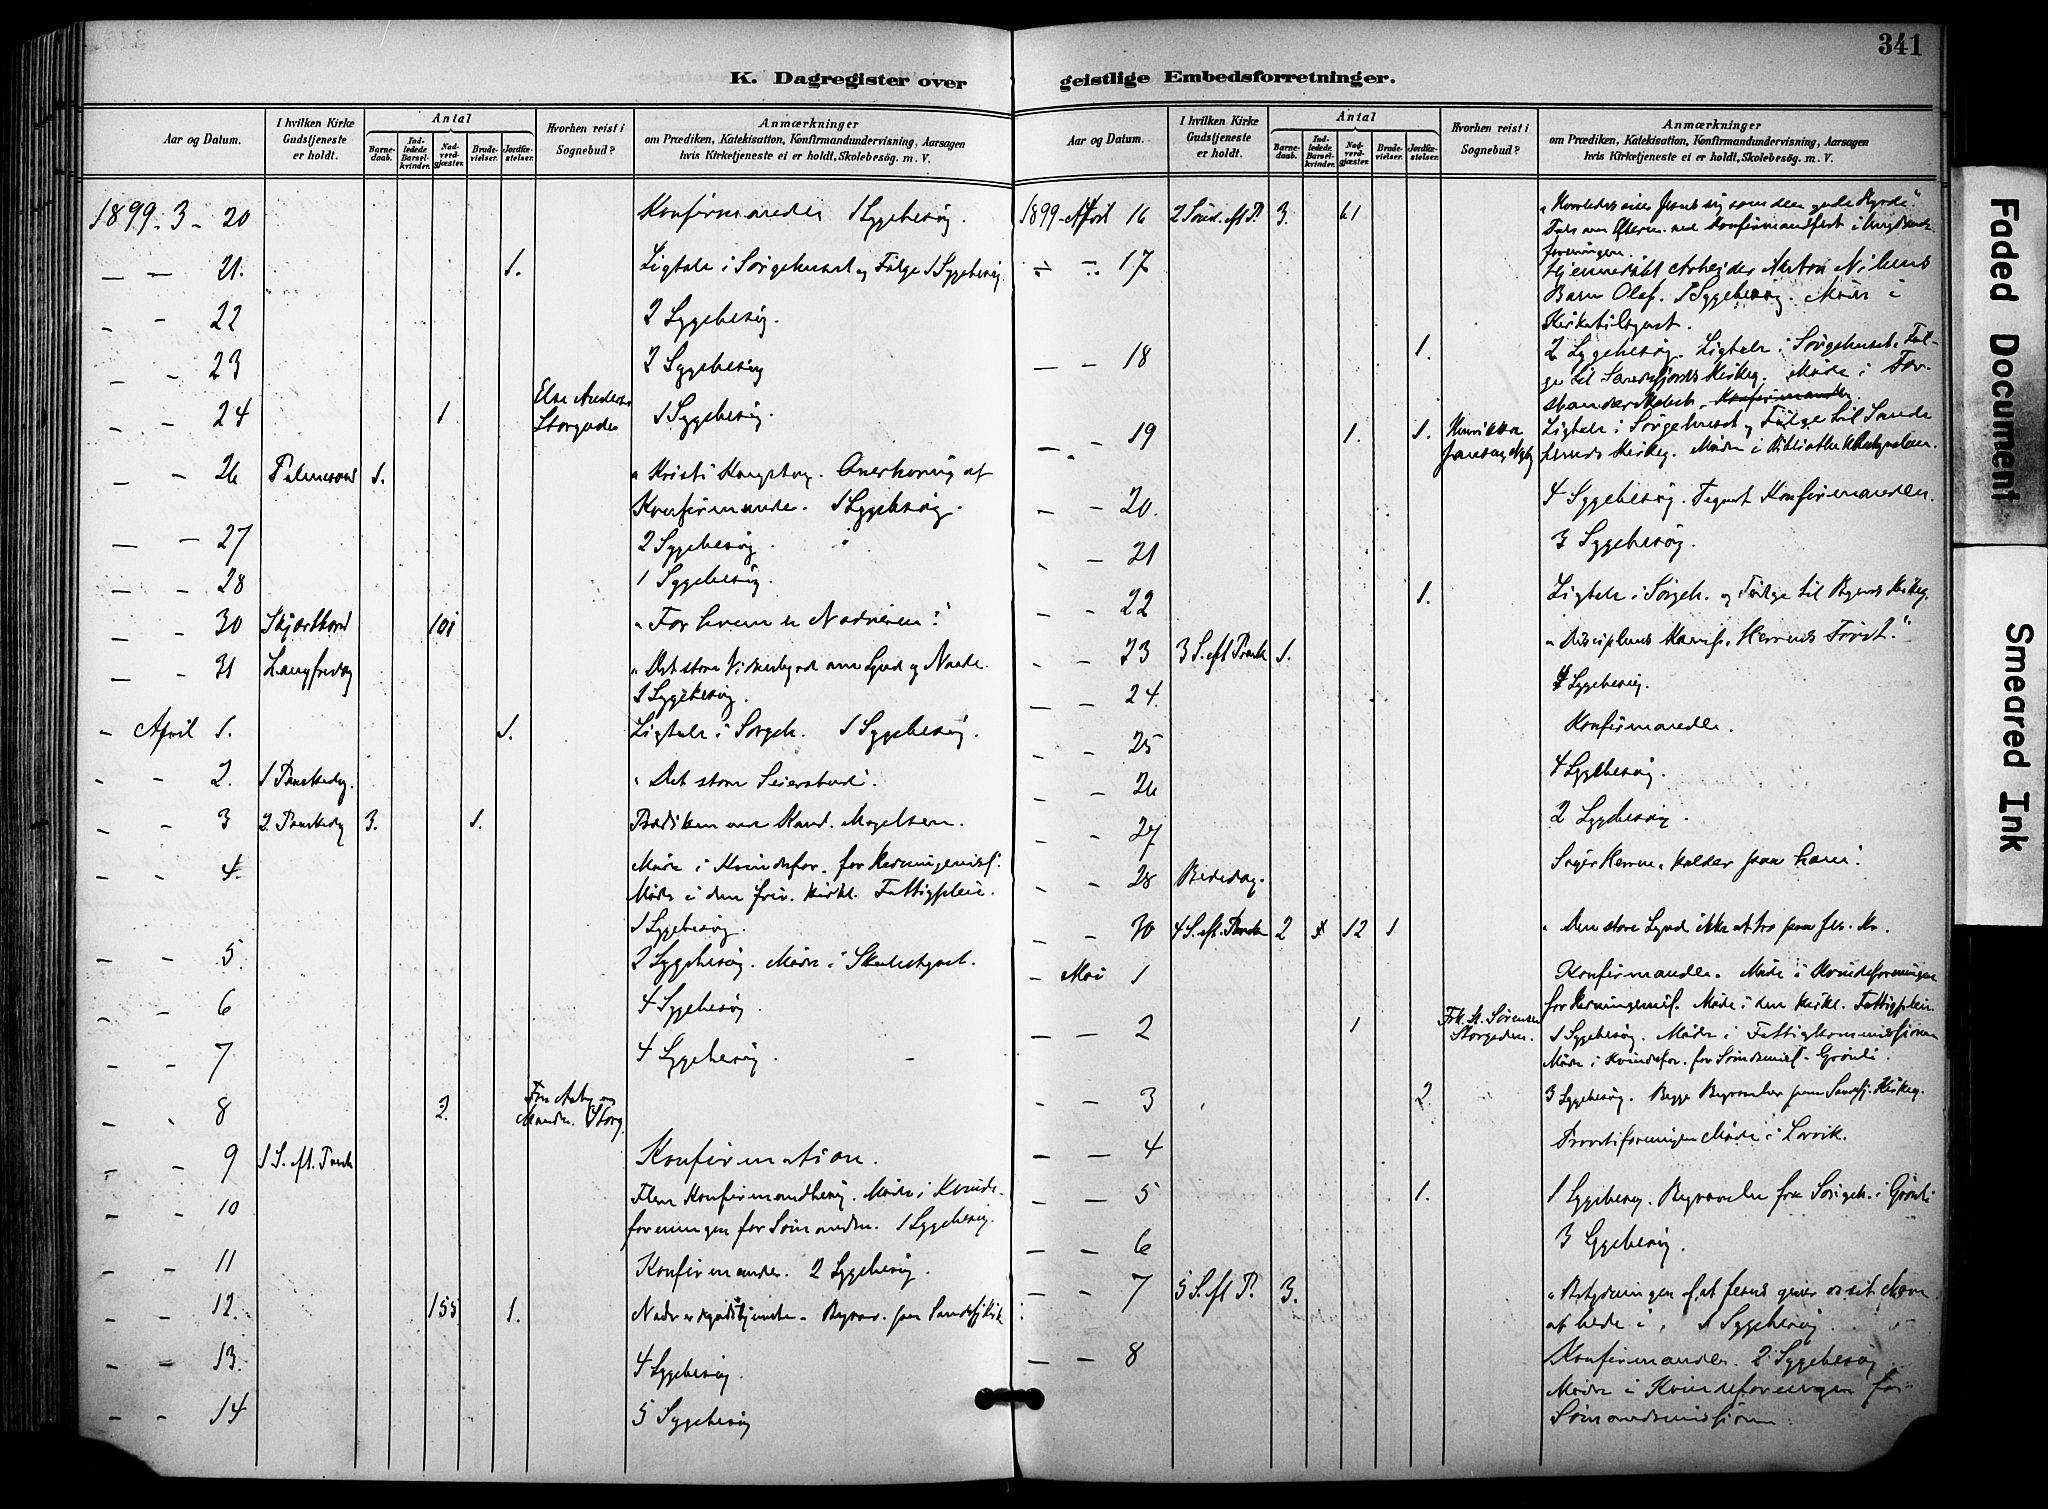 341
K. Dagregister over
geistlige Embedsforretninger.
Aar og Datum.
I hvilken Kirke Gudstjeneste er holdt.
Antal
Barnedaab.
Indledede Barselkvinder.
Nadverdgjæster.
Brudevielser.
Jordfæstelser.
Hvorhen reist i Sognebud?
Anmærkninger
om Prædiken, Katekisation, Konfirmandundervisning, Aarsagen
hvis Kirketjeneste ei er holdt, Skolebesög. m. V.
1899-3-20 Konfirmander 1 Sygebesøg.
— — 21. 1. Ligtale i Sørgehuset og Følge 1 Sygebesøg.
- - 22 2 Sygebesøg.
- - 23 3 Sygebesøg
- - 24 1 Else Anders Storgaden 1 Sygebesøg.
- - 26 Palmesønd 1. "Kristi Kongetog. Overhøring af
Konfirmander. 1 Sygebesøg.
— - 27 2 Sygebesøg.
- - 28 1 Sygebesøg.
- - 30 Skjærthorsd 101 "For hvem er Nadveren?"
- - 31 Langfredag "Det store Vidnesbyrd om Synd og Naade.
1 Sygebesøg.
- April 1. 1. Ligtale i Sørgeh. 1 Sygebesøg.
- - 2. 1 Paaskedag. "Det store Seiersbud".
- - 3 2 Paaskedag 3. 1. Prædiken ved Kand. Magelssen.
- - 4. Møde i Kvindefor. for Hedningemis.
Møde i den friv. kirkl. Fattigpleie.
1 Sygebesøg.
- - 5. 2 Sygebesøg. Møde i Skolestyret.
- - 6 4 Sygebesøg
- - 7 4 Sygebesøg.
- - 8 2. Fru Aaby og Manden. Storg.
- - 9 1 S. eft. Paaske Konfirmation.
- - 10 Flere Konfirmandbesøg. Møde i Kvinde-
foreningen for Sømænden. 1 Sygebesøg.
- - 11 Konfirmander. 2 Sygebesøg.
- - 12. 155 1. Nadverdgudstjeneste - Begrav. paa Sandefj. Kirk
- - 13. 4 Sygebesøg.
- - 14 5 Sygebesøg
Aar og Datum.
I hvilken Kirke Gudstjeneste er holdt.
Antal
Barnedaab.
Indledede Barselkvinder.
Nadverdgjæster.
Brudevielser.
Jordfæstelser.
Hvorhen reist i Sognebud?
Anmærkninger
om Prædiken, Katekisation, Konfirmandundervisning, Aarsagen
hvis Kirketjeneste ei er holdt, Skolebesög. m. V.
1899-April 16 2 Sønd. eft P. 3. 61 "Hvorledes viser Jesus sig som den gode Hyrde".
Tale om Efterm. ved Konfirmandfest i Ungdoms-
foreningen.
- - 17 Hjemmedøbt Arbejder Anton Nilsens
Barn Olaf. 1 Sygebesøg. Møde i
Kirketilsynet.
— - 18 1. 2 Sygebesøg. Ligtale i Sørgehuset. Føl-
ge til Sandefjords Kirkeg. Møde i For-
standerskabet. Konfirmander
— - 19 1. 1. Ligtale i Sørgehuset og Følge til Sande
herreds Kirkeg. Møde i
- - 20. 4 Sygebesøg. Konfirmander.
- - 21 3 Sygebesøg.
- - 22 1. Ligtale i Sørgeh. og Følge til Byens Kirkeg.
- - 23 3 S. eft Paaske 1. "Disciplenes Herrens Trøst."
— - 24. 4 Sygebesøg.
- - 25 Konfirmander.
- - 26 4 Sygebesøg.
- - 27 2 Sygebesøg.
- - 28 Bededag. Søger Herren, kalder paa ham!
- - 30 4 S. eft. Paaske 2 12 1 "Den store Synd ikke at tro paa
- Mai 1 Konfirmander. Møde i Kvindeforeningen
for Hedningemis. Møde i den kirkl. Fattigpleie
— - 2 1 Frk. Sørensen Storgaden. 1 Sygebesøg. Møde i Fattigkommissionen
Møde i Kvindefor. for Sømandsmis. Grønli.
- - 3 2. 3 Sygebesøg. Begge Begravelser paa Sandefj. Kirkeg.
— - 4 Provstiforeningen Møde i Larvik.
— - 5 1. 1 Sygebesøg. Begravelse fra Sørgeh. i Grønli
— - 6 3 Sygebesøg.
- - 7 5 S. eft P. 3. "Betydningen af at Jesus giver os sit Navn
at bede i". 1 Sygebesøg.
— - 8 Konfirmander. 2 Sygebesøg.
Møde i Kvindeforeningen for
Sømandsmissionen.
Faded Document
Smeared Ink